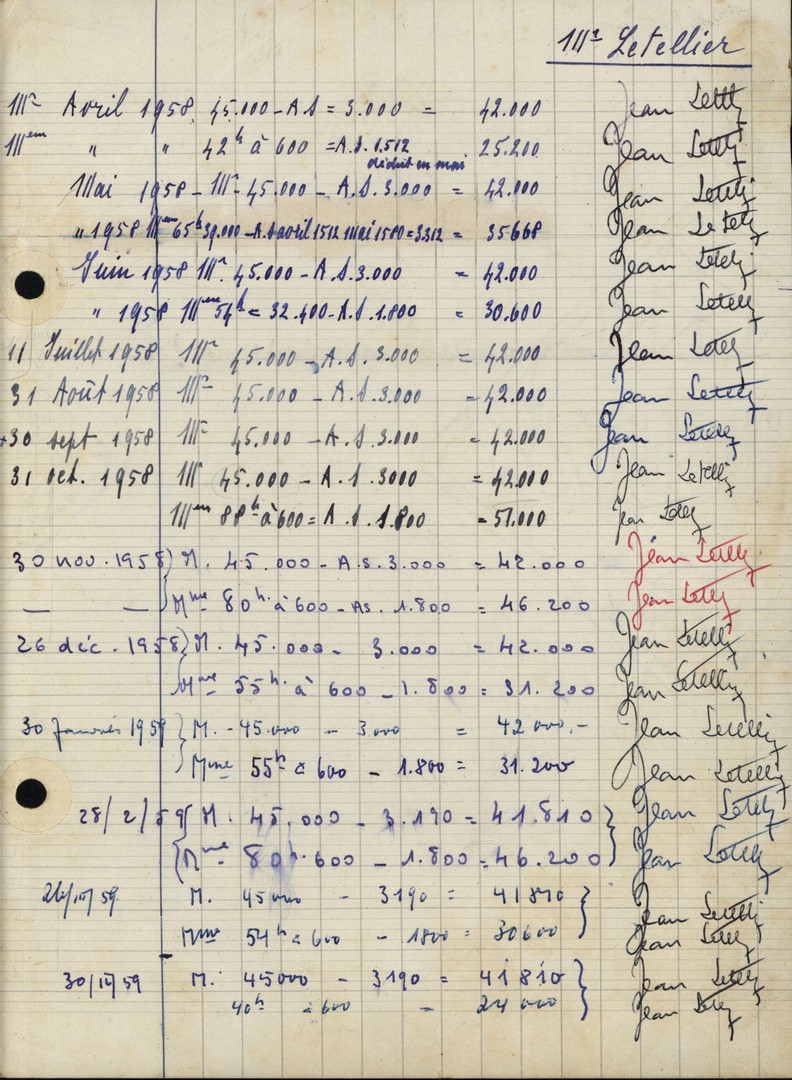 Mr Letellier
Mr Avril 1958 45.000 - A S = 3.000 = 42.000 Jean Letelly
Mem " " 42h à 600 = A.S. 1.512 25.200 Jean Letelly
déduit en mai
Mai 1958 - Mr 45.000 - A.S. 3.000 = 42.000 Jean Letelly
" 1958 Mem 65h 39.000 - A.S avril 1512 mai 1580 = 3.312 = 35668 Jean Letelly
Juin 1958 Mr. 45.000 - A.S. 3.000 = 42.000 Jean Letelly
" 1958 Mem 54h = 32.400 - A.S. 1.800 = 30.600 Jean Letelly
11 Juillet 1958 Mr 45.000 - A.S. 3.000 = 42.000 Jean Letelly
31 Août 1958 Mr 45.000 - A.S. 3.000 = 42.000 Jean Letelly
30 sept 1958 Mr 45.000 - A.S. 3.000 = 42.000 Jean Letelly
31 oct. 1958 Mr 45.000 - A.S. 3000 = 42.000 Jean Letelly
Mem 88h à 600 = A.S. 1.800 = 51.000 Jean Letelly
30 nov. 1958 } M. 45.000 - A.s. 3.000 = 42.000 Jean Letelly
— — Mme 80h. à 600 - As. 1.800 = 46.200 Jean Letelly
26 déc. 1958 } M. 45.000 - 3.000 = 42.000 Jean Letelly
Mme 55h. à 600 - 1.800 = 31.200 Jean Letelly
30 Janvier 1959 { M. - 45.000 - 3000 = 42000.- Jean Letelly
Mme 55h à 600 - 1.800 = 31.200 Jean Letelly
28/2/59 { M. 45.000 - 3.190 = 41.810 } Jean Letelly
{ Mme 80h. 600 - 1.800 = 46.200 } Jean Letelly
M. 45000 - 3190 = 41810 } Jean Letelly
Mme 54h à 600 - 1800 = 30600 } Jean Letelly
M. 45000 - 3190 = 41810 } Jean Letelly
40h à 600 - 24000 } Jean Letelly